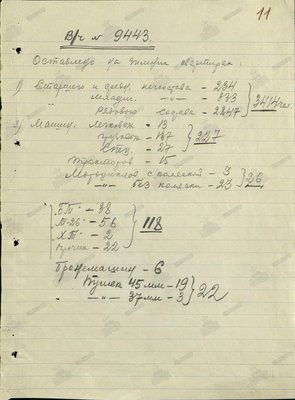 11
В/ч № 9443.
Оставлено на зимних квартирах:
1) Старшего и средн. начсостава – 294
младш. –"– – 873
Рядового состава – 2247
3414 чел.
2) Машин: легковых – 13
грузовых – 187
Спец. – 27
227
Тракторов – 15
Мотоциклов с коляской – 3
–"– без коляски – 23
26
БТ – 38
Т-26 – 56
ХТ – 2
прочих – 22
118
Бронемашин – 6
Пушек 45 мм – 19
–"– 37 мм – 3
22